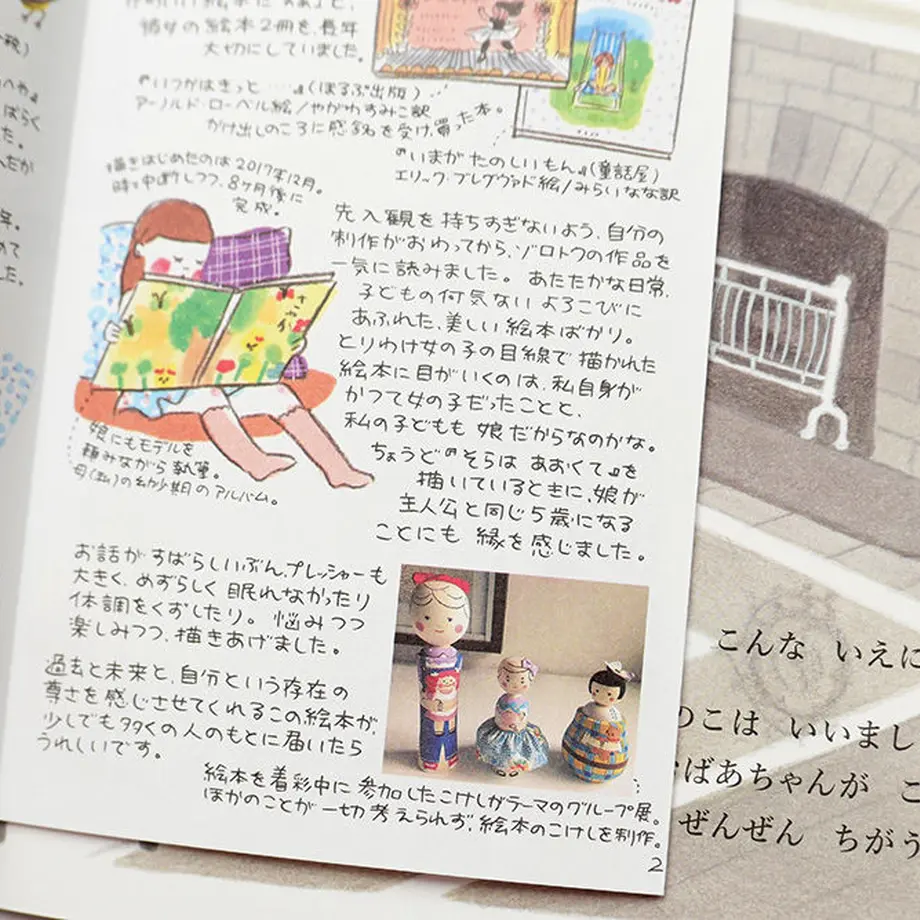 彼女の絵本2冊を、長年
大切にしていました。
『いつかはきっと……』(ほるぷ出版)
アーノルド・ローベル絵/やがわすみこ訳
かけ出しのころに感銘を受け、買った本。
『いまがたのしいもん』(童話屋)
エリック・ブレグヴァド絵/みらいなな訳
描きはじめたのは2017年12月。
時々中断しつつ、8ヶ月後に
完成。
先入観を持ちすぎないよう、自分の
制作がおわってから、ゾロトウの作品を
一気に読みました。あたたかな日常、
子どもの何気ないよろこびに
あふれた、美しい絵本ばかり。
とりわけ女の子の目線で描かれた
絵本に目がいくのは、私自身が
かつて女の子だったことと、
私の子どもも娘だからなのかな。
ちょうど『そらはあおくて』を
描いているときに、娘が
主人公と同じ5歳になる
ことにも縁を感じました。
さやか
娘にもモデルを
頼みながら執筆。
母(私)の幼少期のアルバム。
お話がすばらしいぶん、プレッシャーも
大きく、めずらしく眠れなかったり
体調をくずしたり。悩みつつ
楽しみつつ、描きあげました。
過去と未来と、自分という存在の
尊さを感じさせてくれるこの絵本が、
少しでも多くの人のもとに届いたら
うれしいです。
絵本を着彩中に参加したこけしがテーマのグループ展。
ほかのことが一切考えられず、絵本のこけしを制作。
2
こんな いえに
のこは いいまし
ばあちゃんが こ
ぜんぜん ちがう